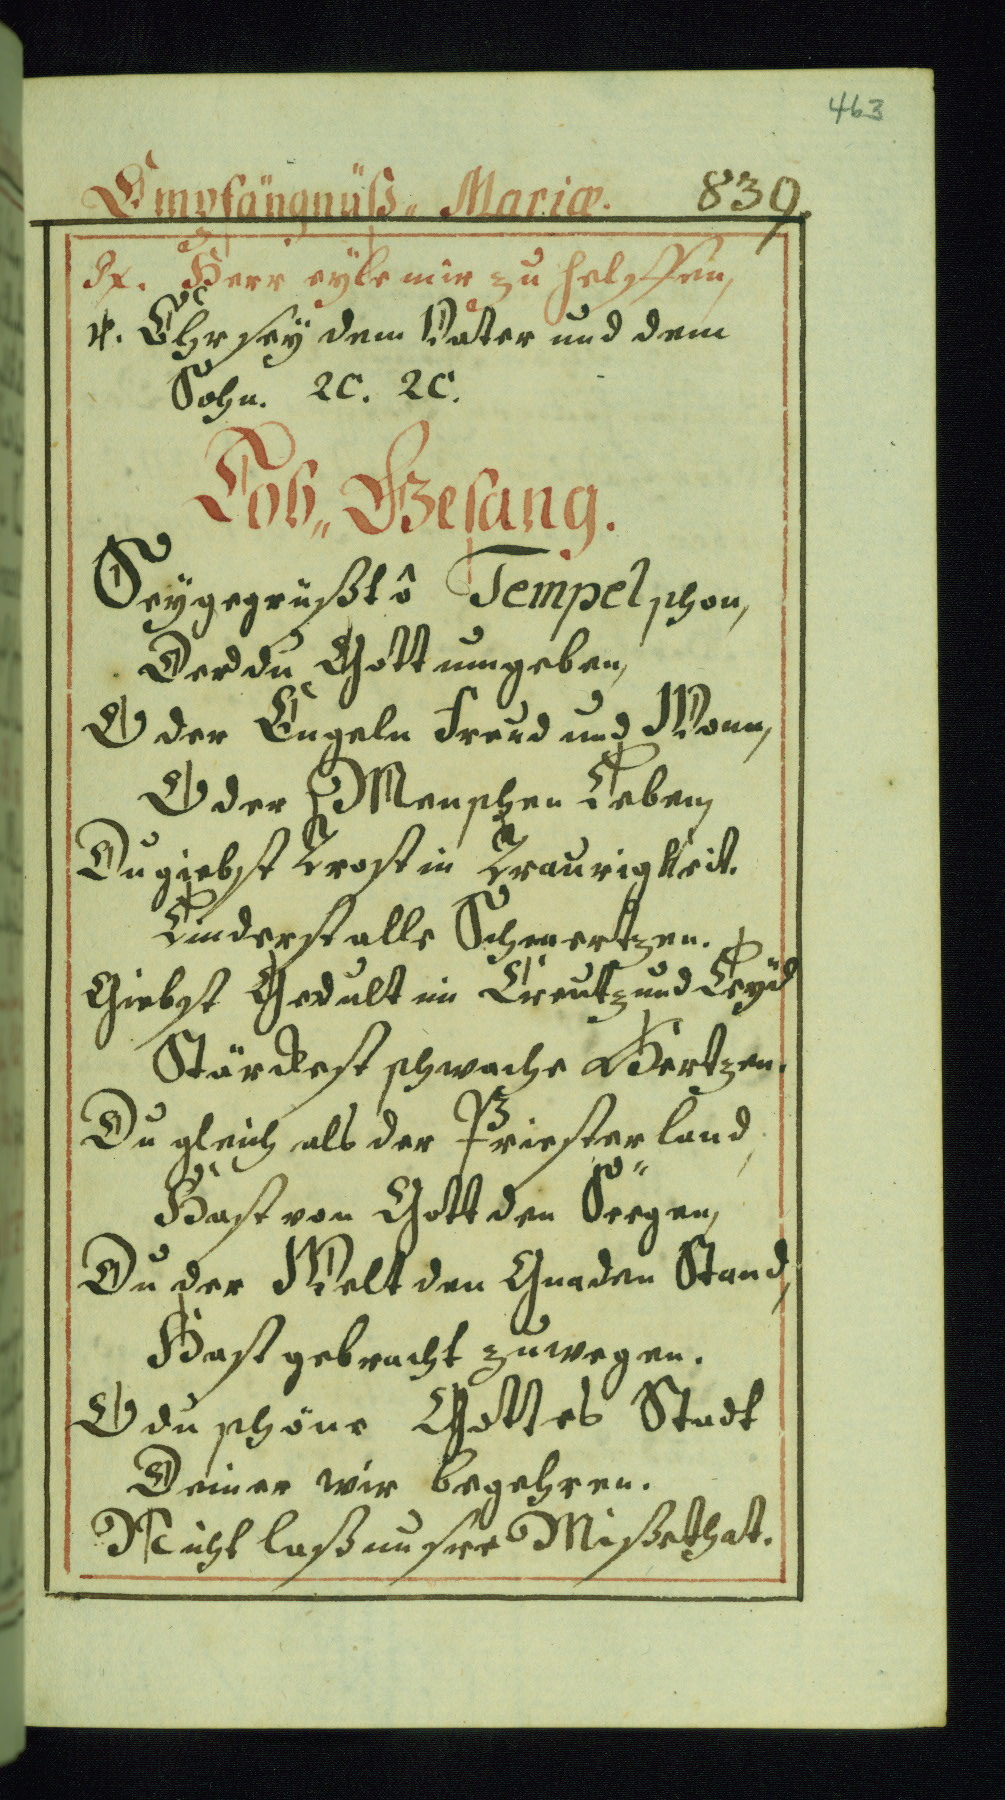 463
Empfängnüß„ Mariæ. 839.
Rx. Herr eyle mir zu helffen,
V. Ehr seÿ dem Vater und dem
Sohn. ꝛc. ꝛc.
Lob„ Gesang.
Seÿ gegrüßt ô Tempel schon,
Der du Gott umgeben,
O der Engeln Freud und Wonn,
O der Menschen Leben,
Du giebst Trost in Traurigkeit.
Linderst alle Schmertzen.
Giebst Gedult im Creutz und Leyd
Stärckest schwache Hertzen.
Du gleich als der Priester land,
Hast von Gott den Seegen,
Du der Welt den Gnaden Stand,
Hast gebracht zuwegen.
O du schöne Gottes Stadt
Deiner wir begehren.
Nicht laß unsre Mißethat.